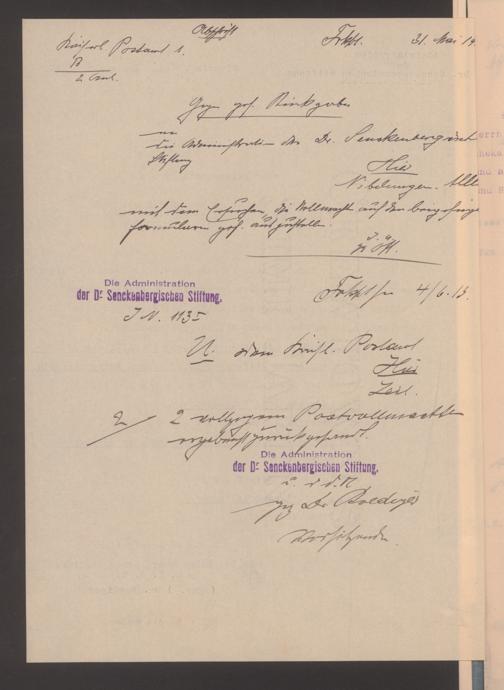 Abschrift
Kaiserl Postamt 1.
Frkft. 31. Mai 19
B
2 Anl.
Gegen gef. Rückgabe
an
die Administration der Dr. Senckenbergisch
Stiftung
Hier
Nibelungen. Alle
mit dem Ersuchen, die Vollmacht auf den beigefügt
Formularen gef. auszustellen.
Die Administration
der Dr Senckenbergischen Stiftung.
J. N. 1135
Frkft 4/6.13.
U. dem Kaiserl. Postamt
Hier
Zeil.
2/ 2 vollzogene Postvollmachten
ergebenst zurückgesandt.
Die Administration
der Dr Senckenbergischen Stiftung.
gez Dr Roediger
Vorsitzender.